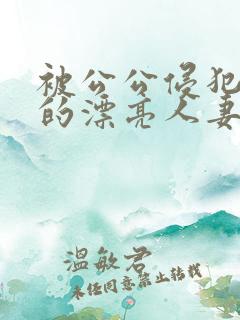 被公公侵犯
的漂亮人妻
温敏君
未经同意禁止转载